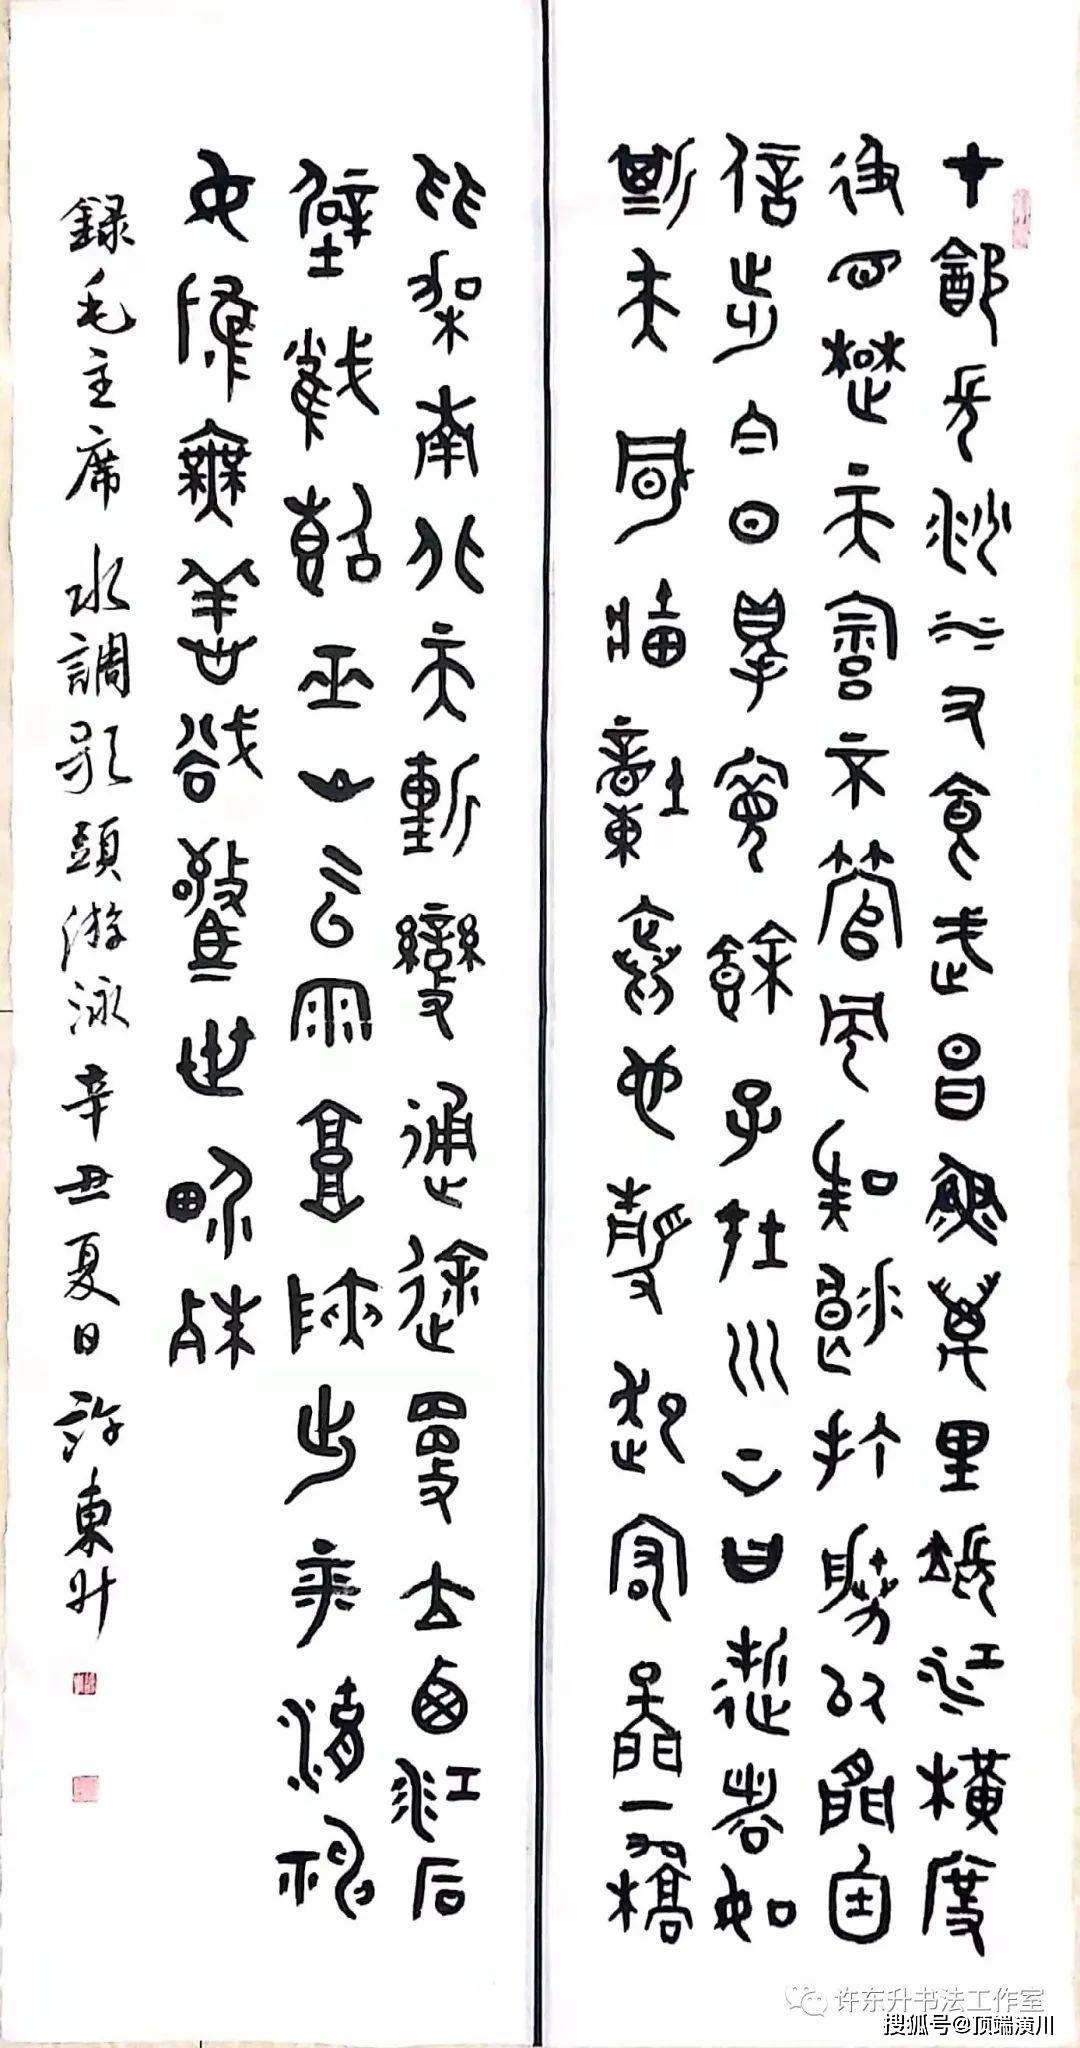 才飲長沙水又食武昌魚萬里長江橫度
極目楚天舒不管風吹浪打勝似閒庭
信步今日得寬餘子在川上曰逝者如
斯夫風檣動龜蛇靜起宏圖一橋
飛架南北天塹變通途更立西江石
壁截斷巫山雲雨高峽出平湖神
女應無恙當驚世界殊
錄毛主席水調歌頭游泳辛丑夏日許東升
许东升书法工作室
搜狐号@顶端潢川